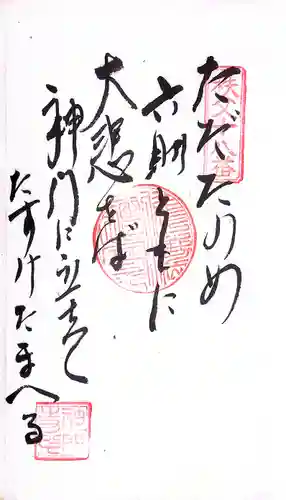 秩父十八番
ただたのめ
六則ともに
大悲をば
神門に立ちて
たすけたまへる